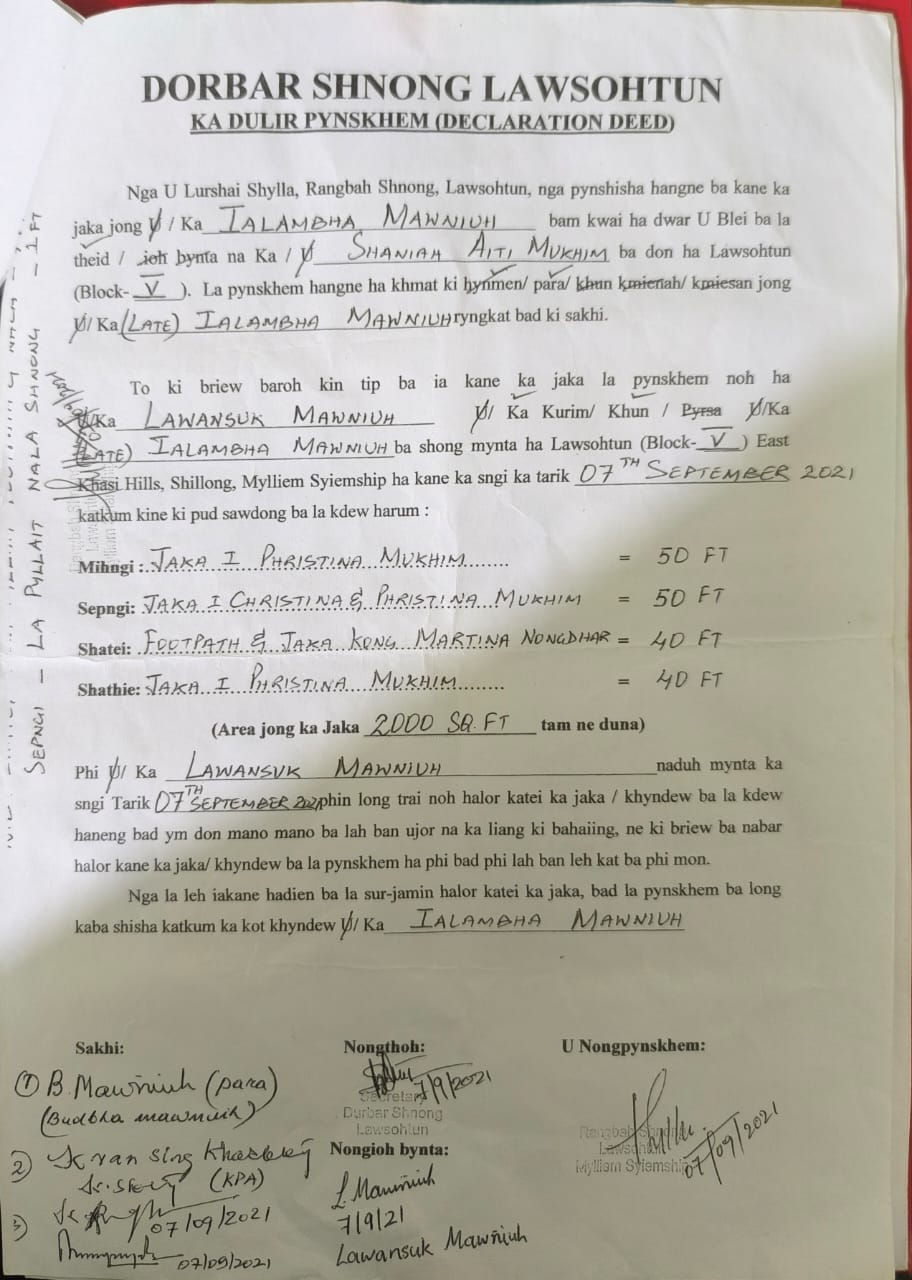 DORBAR SHNONG LAWSOHTUN
KA DULIR PYNSKHEM (DECLARATION DEED)
Nga U Lurshai Shylla, Rangbah Shnong, Lawsohtun, nga pynshisha hangne ba kane ka
jaka jong U / Ka IALAMBHA MAWNIUH bam kwai ha dwar U Blei ba la
theid / ioh bynta na Ka / U SHANIAH AITI MUKHIM ba don ha Lawsohtun
(Block- V ). La pynskhem hangne ha khmat ki hynmen/ para/ khun kmienah/ kmiesan jong
U/ Ka (LATE) IALAMBHA MAWNIUH ryngkat bad ki sakhi.
To ki briew baroh kin tip ba ia kane ka jaka la pynskhem noh ha
U/Ka LAWANSUK MAWNIUH U/ Ka Kurim/ Khun / Pyrsa U/Ka
(LATE) IALAMBHA MAWNIUH ba shong mynta ha Lawsohtun (Block- V ) East
Khasi Hills, Shillong, Mylliem Syiemship ha kane ka sngi ka tarik 07TH SEPTEMBER 2021
katkum kine ki pud sawdong ba la kdew harum :
Mihngi : JAKA I PHRISTINA MUKHIM = 50 FT
Sepngi: JAKA I CHRISTINA & PHRISTINA MUKHIM = 50 FT
Shatei: FOOTPATH & JAKA KONG MARTINA NONGDHAR = 40 FT
Shathie: JAKA I PHRISTINA MUKHIM = 40 FT
(Area jong ka Jaka 2000 SQ.FT tam ne duna)
Phi U/ Ka LAWANSUK MAWNIUH naduh mynta ka
sngi Tarik 07TH SEPTEMBER 2021 phin long trai noh halor katei ka jaka / khyndew ba la kdew
haneng bad ym don mano mano ba lah ban ujor na ka liang ki bahaiing, ne ki briew ba nabar
halor kane ka jaka/ khyndew ba la pynskhem ha phi bad phi lah ban leh kat ba phi mon.
Nga la leh iakane hadien ba la sur-jamin halor katei ka jaka, bad la pynskhem ba long
kaba shisha katkum ka kot khyndew U/ Ka IALAMBHA MAWNIUH
SEPNGI - LA PYLLAIT NALA SHNONG - 1 FT
Sakhi: Nongthoh: U Nongpynskhem:
① B. Mawniuh (para)
(Budbha mawniuh)
7/9/2021
Secretary
Durbar Shnong
Lawsohtun
Rangbah Shnong
Lawsohtun
Mylliem Syiemship
07/09/2021
2) (KPA)
3) 07/09/2021
07/09/2021
Nongioh bynta:
L. Mawniuh
7/9/21
Lawansuk Mawniuh